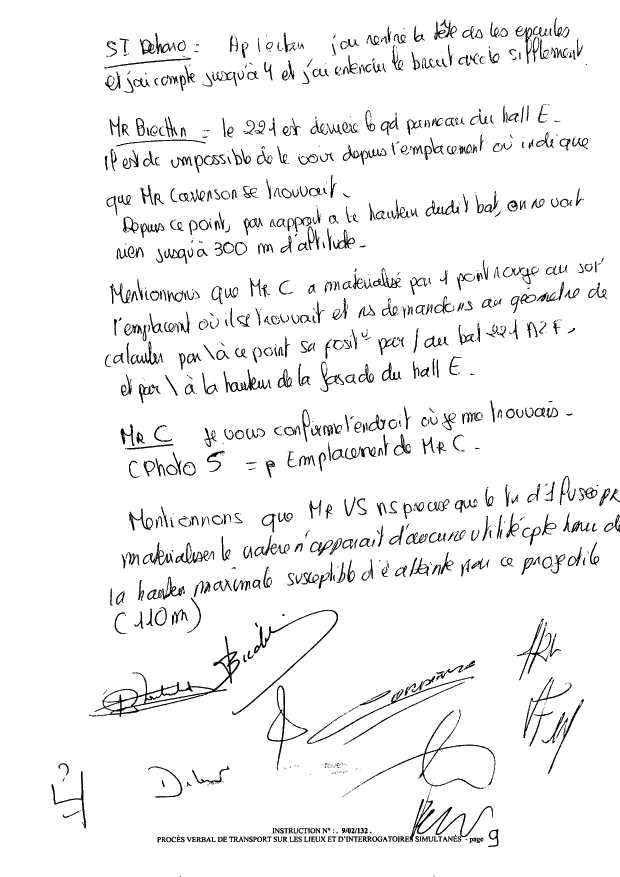 ST Deharo : Ap l'éclan j'ai rentré la tête ds les épaules
et j'ai compté jusqu'à 4 et j'ai entendu le bruit avec le sifflement
Mr Biechlin = le 221 est derrière le gd panneau du hall E.
Il est dc impossible de le voir depuis l'emplacement où indique
que Mr Casenson se trouvait.
Depuis ce point, par rapport a la hauteur dudit bat, on ne voit
rien jusqu'à 300 m d'altitude.
Mentionnons que Mr C a materialisé par 1 point rouge au sol
l'emplacent où il se trouvait et ns demandons au géometre de
calculer par \ à ce point sa posit° par / au bat 221 AZF,
et par \ à la hauteur de la facade du hall E.
Mr C Je vous confirme l'endroit où je me trouvais -
(Photo 5 = p Emplacement de Mr C -
Mentionnons que Mr VS ns precise que le tir d'1 fusée pr
materialiser le cratere n'apparait d'aucune utilité cpte tenu de
la hauteur maximale susceptible d'ê atteinte par ce projectile
(110m)
INSTRUCTION N° : . 9/02/132 .
PROCÈS VERBAL DE TRANSPORT SUR LES LIEUX ET D'INTERROGATOIRES SIMULTANÉS - page 9